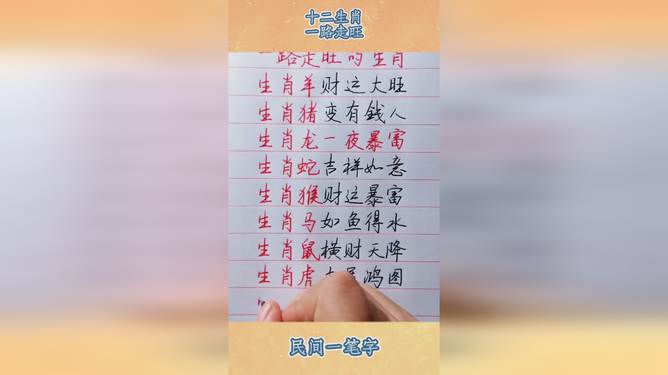 十二生肖
一路走旺
一路走旺的生肖
生肖羊财运大旺
生肖猪变有錢人
生肖龙一夜暴富
生肖蛇吉祥如意
生肖猴财运暴富
生肖马如鱼得水
生肖鼠横财天降
生肖虎大展鸿图
民间一笔字